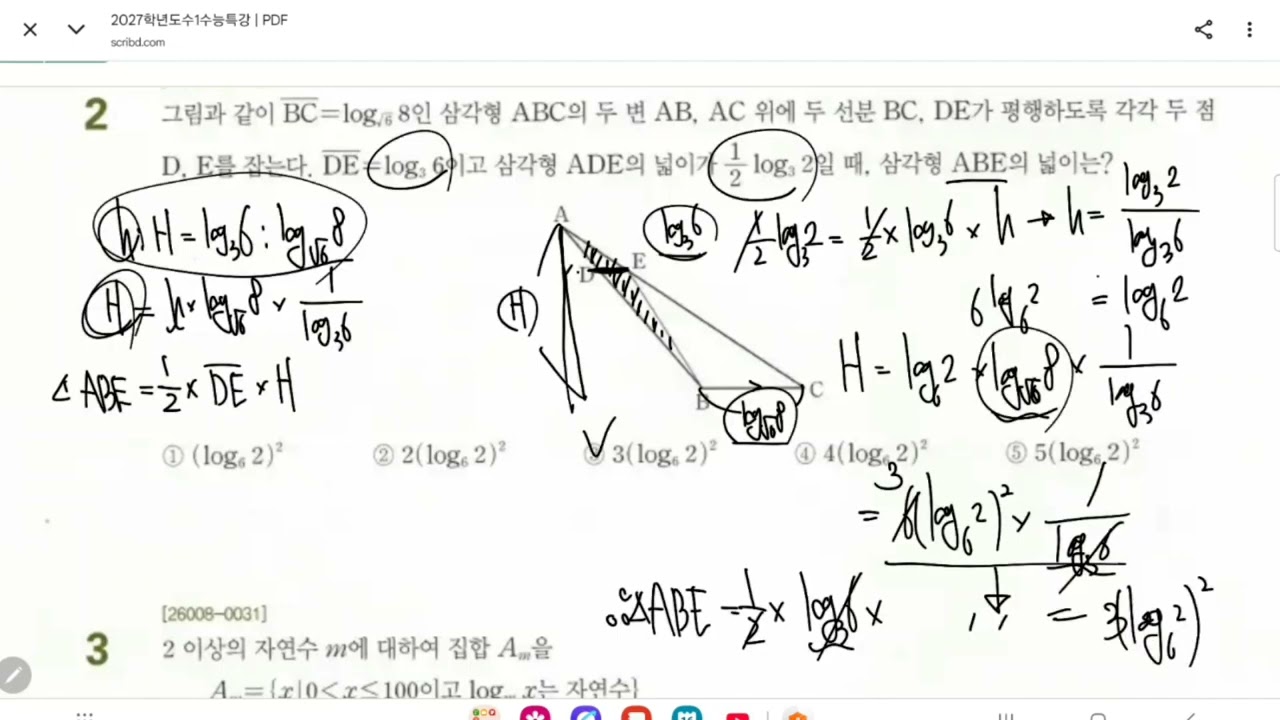 2027학년도수1수능특강 | PDF
scribd.com
2 그림과 같이 BC=log√6 8인 삼각형 ABC의 두 변 AB, AC 위에 두 선분 BC, DE가 평행하도록 각각 두 점
D, E를 잡는다. DE=log₃ 6이고 삼각형 ADE의 넓이가 1/2 log₃ 2일 때, 삼각형 ABE의 넓이는?
h : H = log₃6 : log√6 8
H = h × log√6 8 × 1/log₃6
△ABE = 1/2 × DE × H
A
D
E
B
C
H
log₃6
log√6 8
1/2 log₃2 = 1/2 × log₃6 × h → h = log₃2/log₃6
= log₆2
6log₆2
H = log₆2 × log√6 8 × 1/log₃6
① (log₆ 2)²
② 2(log₆ 2)²
③ 3(log₆ 2)²
④ 4(log₆ 2)²
⑤ 5(log₆ 2)²
3
= 6(log₆2)² × 1/log₃6
∴ △ABE = 1/2 × log₃6 × 〃 = 3(log₆2)²
[26008-0031]
3 2 이상의 자연수 m에 대하여 집합 Aₘ을
Aₘ={x|0<x≤100이고 logₘ x는 자연수}